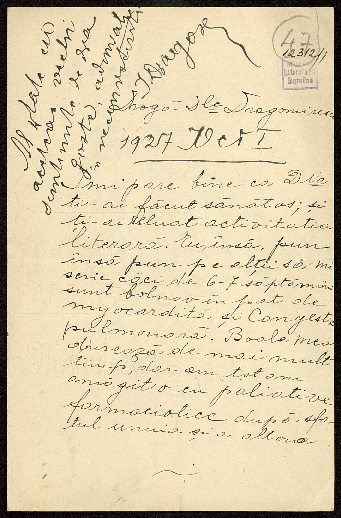 al d-tale cu
aceleași vechi
sentimente de dra
goste, admirație
recunoștință
I Dragoș
47
12312/1
Dragă Dle Dragomirescu
1927 Oct 1
Îmi pare bine ca Dta
te-ai făcut sănătos, și
ți-ai reluat activitatea
literară
însă pun pe alții să mi
scrie căci, de 6-7 săptămîni
sunt bolnav în pat de
myocardită, și Congestie
pulmonară. Boala mea
durează de mai mult
timp, dar am tot am
amăgit-o cu paliative
farmaceutice după sfa
tul unuia și a altora